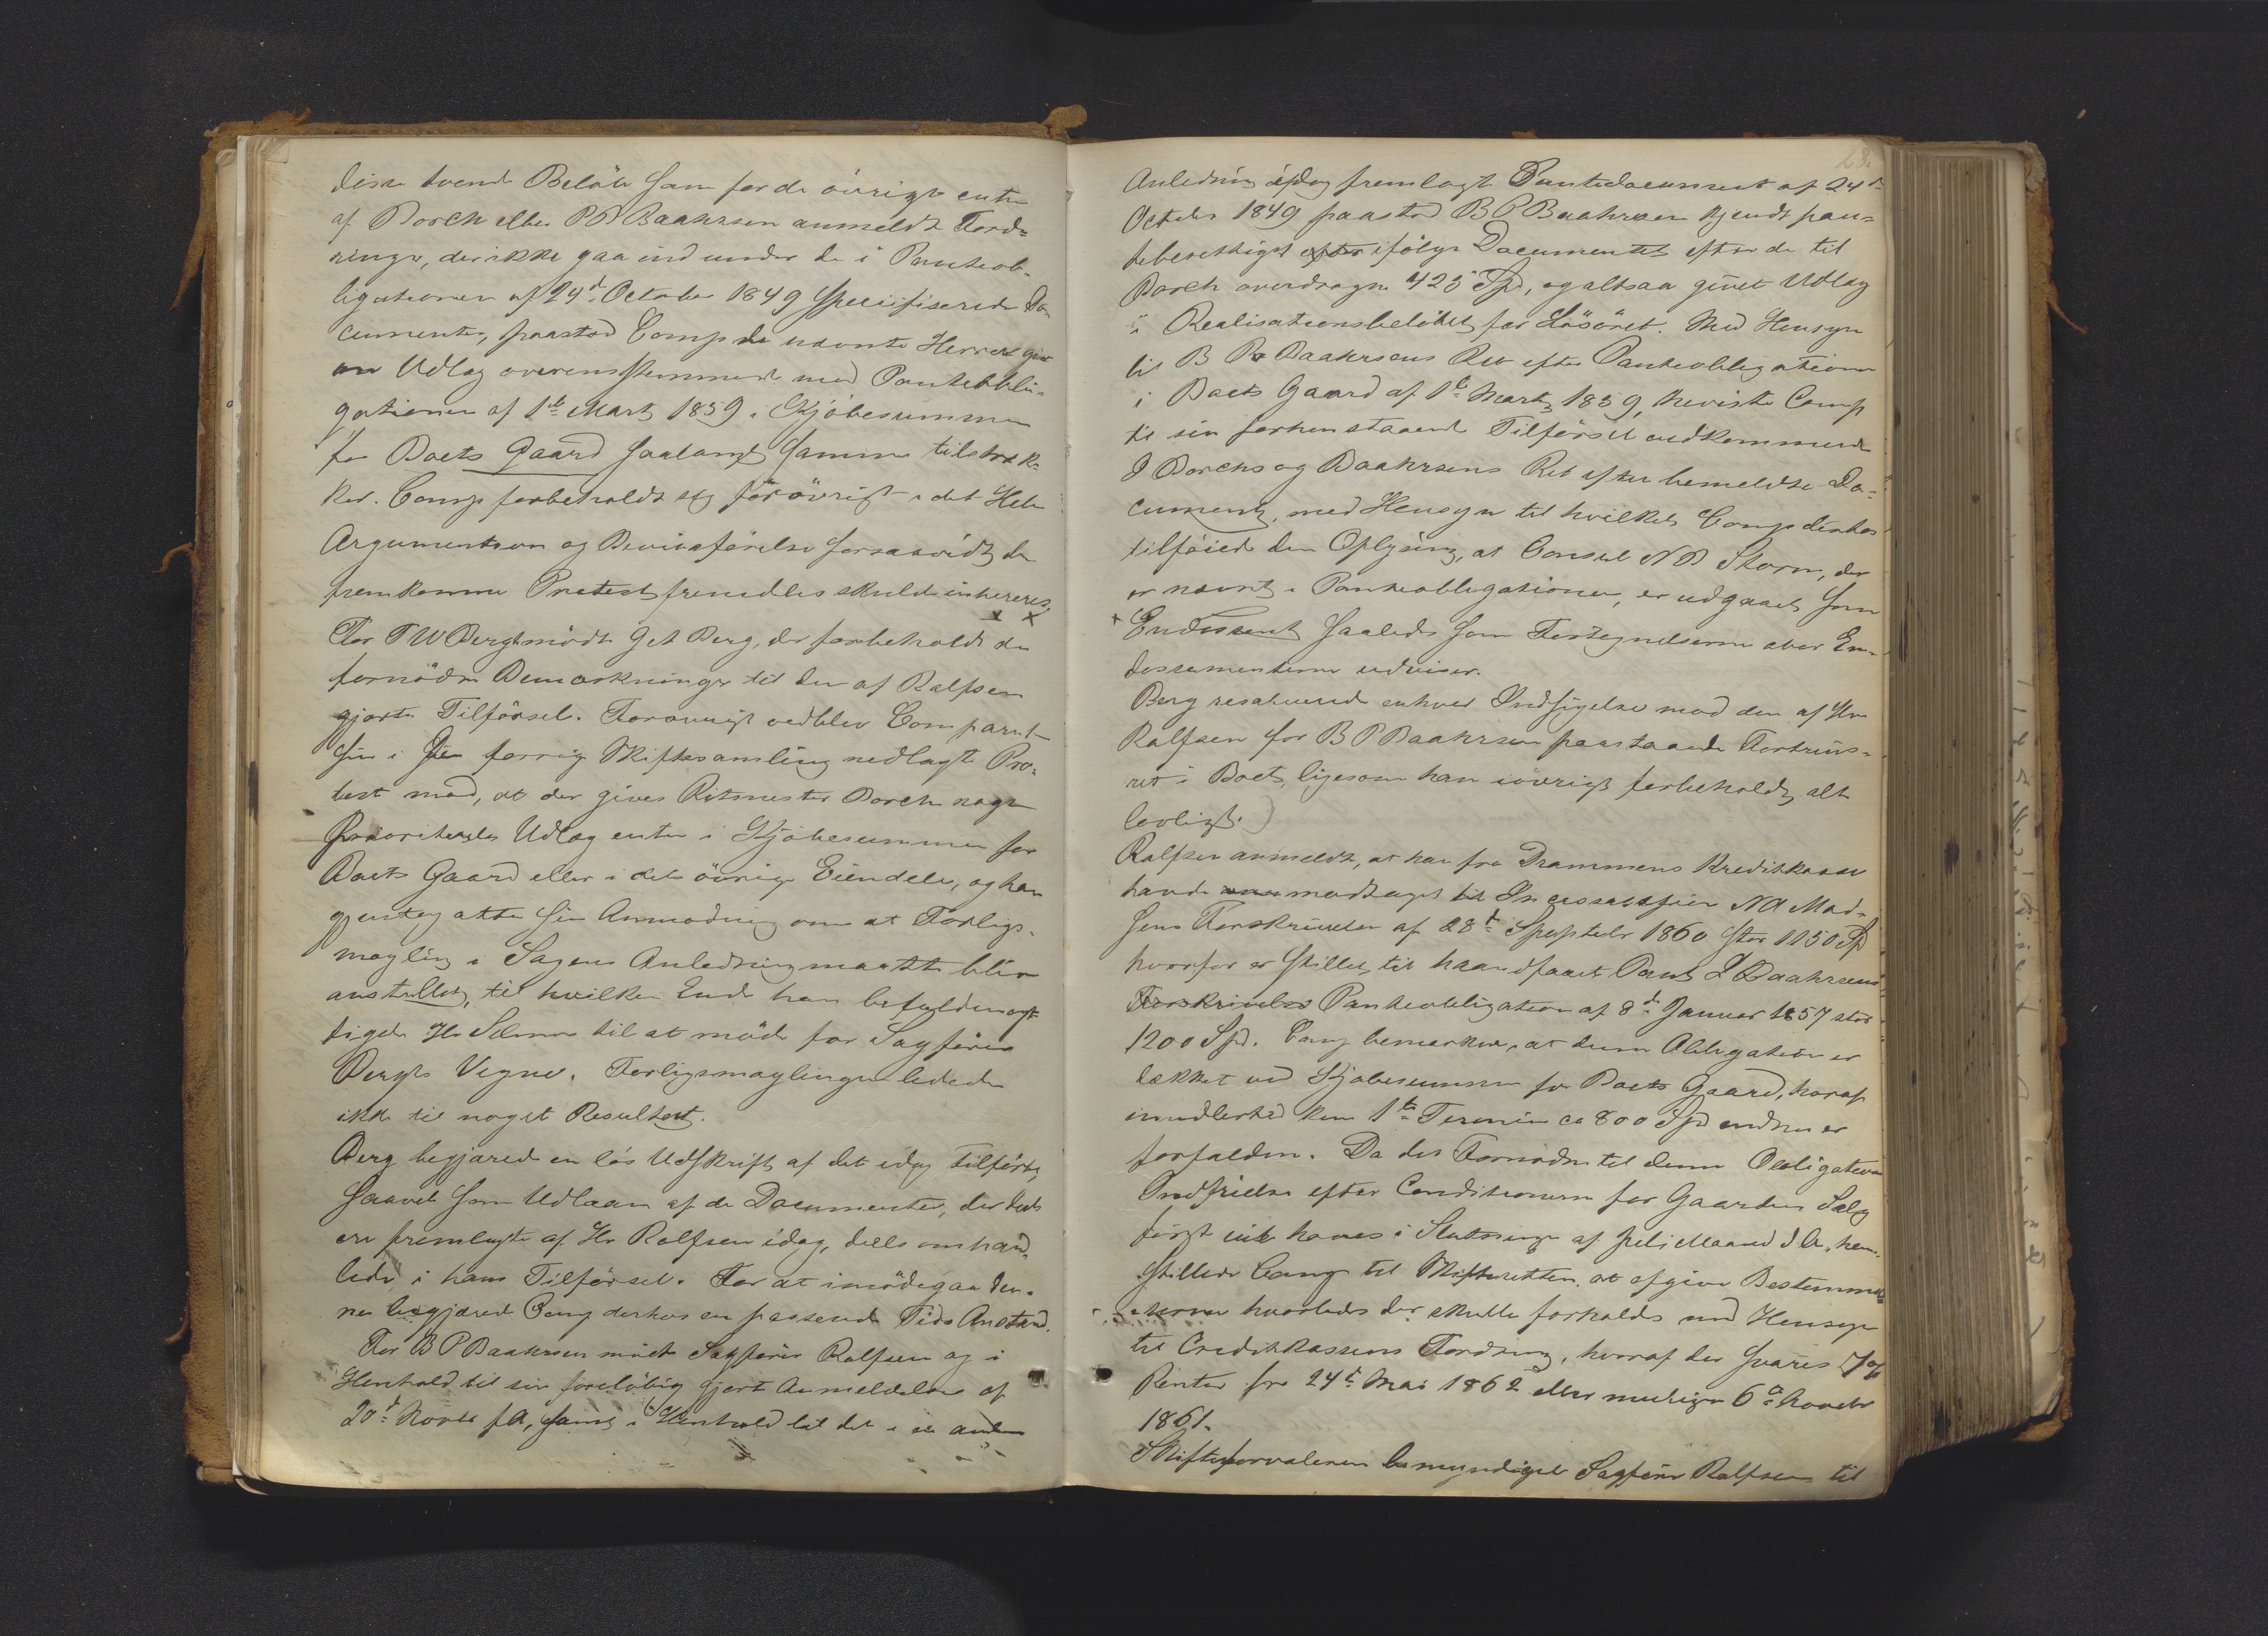 disse tvende Beløb som for de øvrige enten
af Borch eller B P Baahrsen anmeldte Ford-
ringer, der ikke gaa ind under de i Panteob-
ligationen af 24d October 1849 specificerede Do-
cumenter, paastod Comp de nævnte Herrer givet
Udlæg overensstemmende med Panteobli-
gationen af 1ste Marts 1859 i Kjøbesummen
for Boets Gaard saalangt samme tilstræk-
ker. Comp forbeholdt sig forøvrigt i det Hele
Argumentation og Bevisførelse forsaavidt den
fremkomne Protest fremdeles skulde inhereres,
For T W Bergh mødte Get Berg, der forbeholdt de
fornødne Bemærkninger til den af Rolfsen
gjorte Tilførsel. Forøvrigt vedblev Comparent
sin i den forrige Skiftesamling nedlagte Pro-
test mod, at der gives Ritmester Borch noget
prioriteret Udlæg enten i Kjøbesummen for
Boets Gaard eller i dets øvrige Eiendele, og han
gjentog atter sin Anmodning om at Forligs-
mægling i Sagens Anledning maatte blive
anstillet, til hvilken Ende han befuldmægt
tigede Hr til at møde for Sagfører
Berghs Vegne. Forligsmæglingen ledede
ikke til noget Resultat.
Berg begjærede en løs Udskrift af det idag tilførte,
saavel som Udlaan af de Documenter, der dels
ere fremlagte af Hr Rolfsen idag, dels omhand-
lede i hans Tilførsel. For at imødegaa den-
ne begjærede Comp derhos en passende Tids Anstand.
For B P Baahrsen mødte Sagfører Rolfsen og i
Henhold til sin foreløbig gjorte Anmeldelse af
20d Novbr f A, samt i Henhold til det i en anden
68.
Anledning idag fremlagte Pantedocument af 24d
October 1849 paastod B P Baahrsen kjendt pan-
teberettiget efter ifølge Documentet efter de til
Borch overdragne 425 Spd, og altsaa givet Udlæg
i Realisationsbeløbet for Løsøret. Med Hensyn
til B P Baahrsens Ret efter Panteobligationen
i Boets Gaard af 1ste Marts 1859, henviste Comp
til sin forhenstaaende Tilførsel vedkommende
I Borchs og Baahrsens Ret efter bemeldte Do-
cument, med Hensyn til hvilket Comp derhos
tilføiede den Oplysning, at Consul N B Storm, der
er nævnt i Panteobligationen, er udgaaet som
Endossent saaledes som Paategnelserne over En-
dossementerne udviser.
Berg reserverede enhver Indsigelse mod den af Hr
Rolfsen for B P Baahrsen paastaaede Fortrins-
ret i Boet, ligesom han iøvrigt forbeholdt alt
lovligt.
Rolfsen anmeldte, at han fra Drammens Kreditkasse
havde modtaget til Incassation N A Mad-
sens Forskrivelse af 28d Septebr 1860 stor 1150 Spd
hvorfor er stillet til haandfaaet Pant L Baahrsens
Forskrivelse Panteobligation af 8d Januar 1857 stor
1200 Spd. Comp bemærker, at denne Obligation er
dækket ved Kjøbesummen for Boets Gaard, hvoraf
imidlertid kun 1ste Termin ca 800 Spd endnu er
forfalden. Da det Fornødne til denne Obligations
Indfrielse efter Conditionerne for Gaardens Salg
først vil haves i Slutningen af Juli Maaned d A, hen-
stillede Comp til Skifteretten at afgive Bestemmel-
serne hvorledes der skulle forholdes med Hensyn
til Creditkassens Fordring, hvoraf der svares 7 %
Renter fra 24d Mai 1862 eller muligen 6d Novebr
1861.
Skifteforvalteren bemyndigede Sagfører Rolfsen til